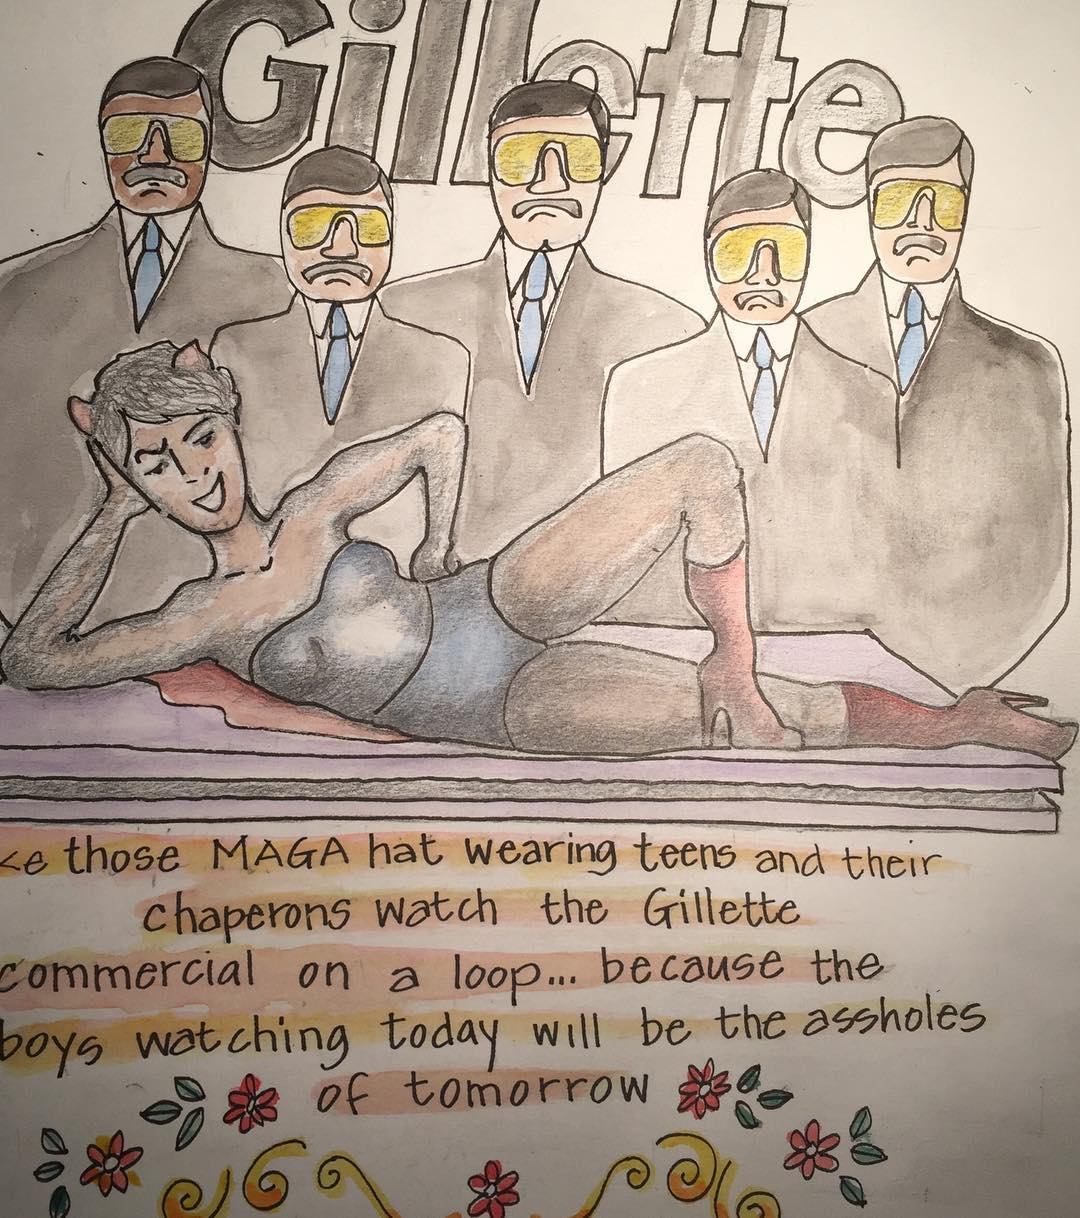 Gillette
those MAGA hat wearing teens and their
chaperons watch the Gillette
commercial on a loop... because the
boys watching today will be the assholes
of tomorrow